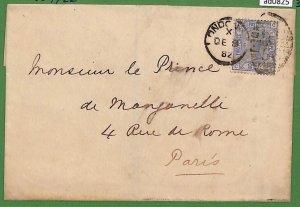 ad0825
LONDON
X
DE 8
82
Monsieur le Prince
de Manganelli
4 Rue de Rome
Paris